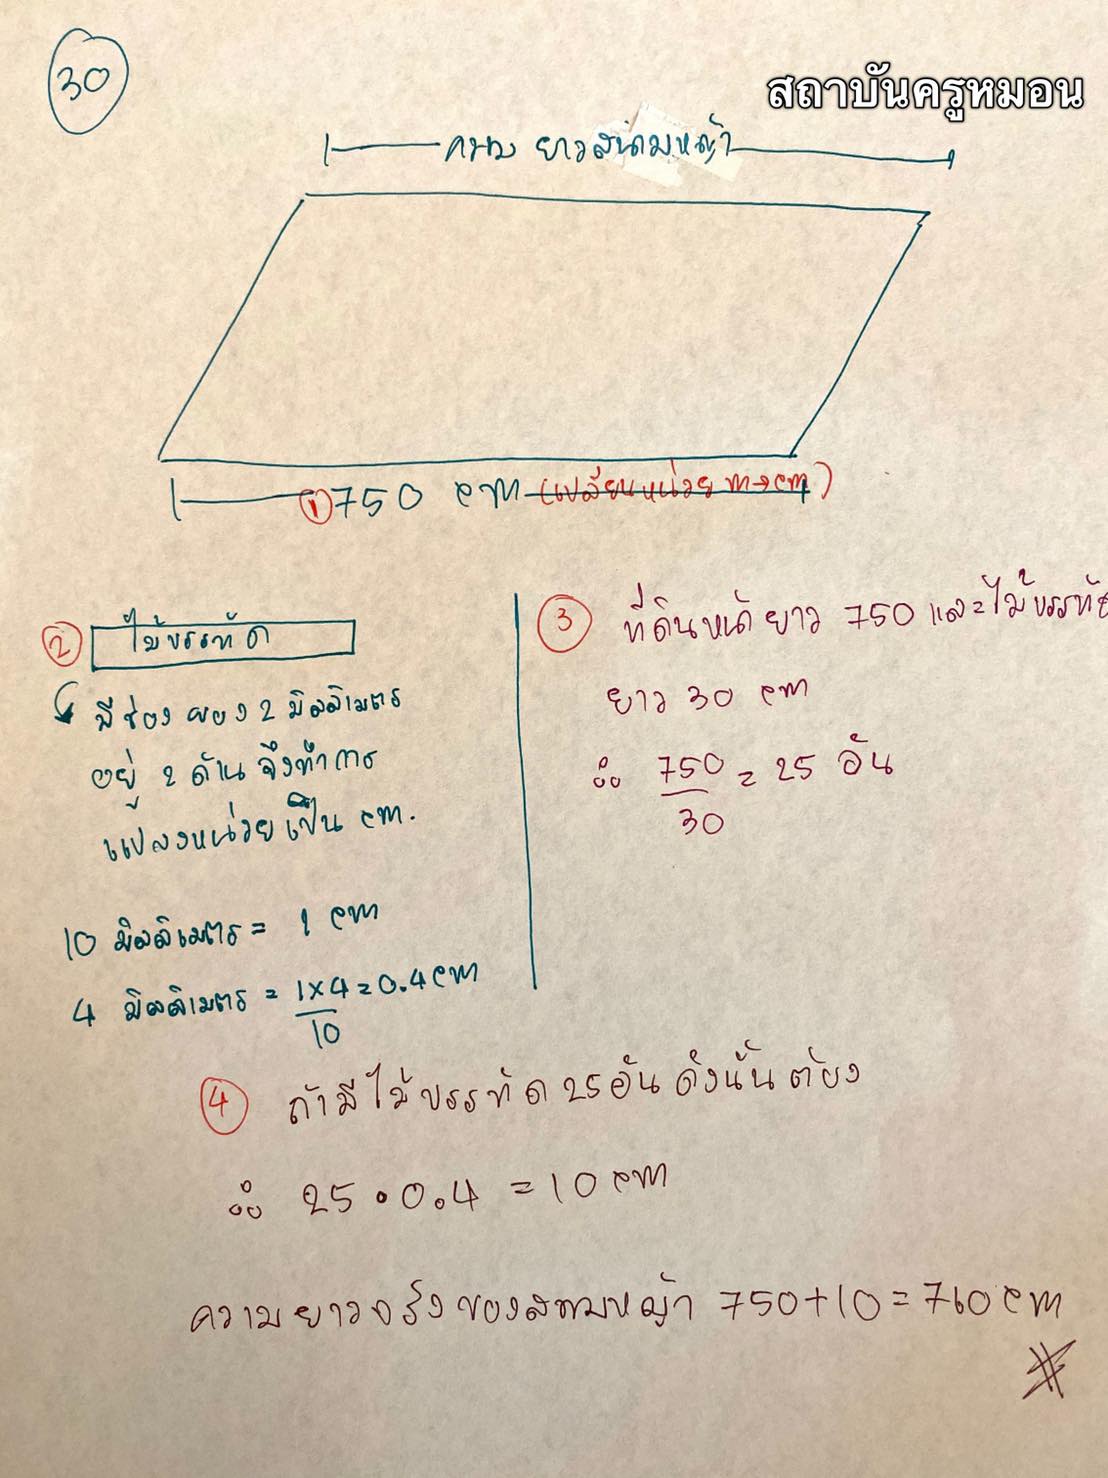 30
สถาบันครูหมอน
ความ ยาวสนามหญ้า
① 750 cm (เปลี่ยนหน่วย m→cm)
② ไม้บรรทัด
มีช่อง ของ 2 มิลลิเมตร
อยู่ 2 ด้าน จึงทำการ
แปลงหน่วยเป็น cm.
10 มิลลิเมตร = 1 cm
4 มิลลิเมตร = 1×4/10 = 0.4 cm
③ ที่ดินหน้ายาว 750 และไม้บรรทัด
ยาว 30 cm
∴ 750/30 = 25 อัน
④ ถ้ามีไม้บรรทัด 25 อัน ดังนั้นต้อง
∴ 25 • 0.4 = 10 cm
ความยาวจริงของสนามหญ้า 750+10 = 760 cm